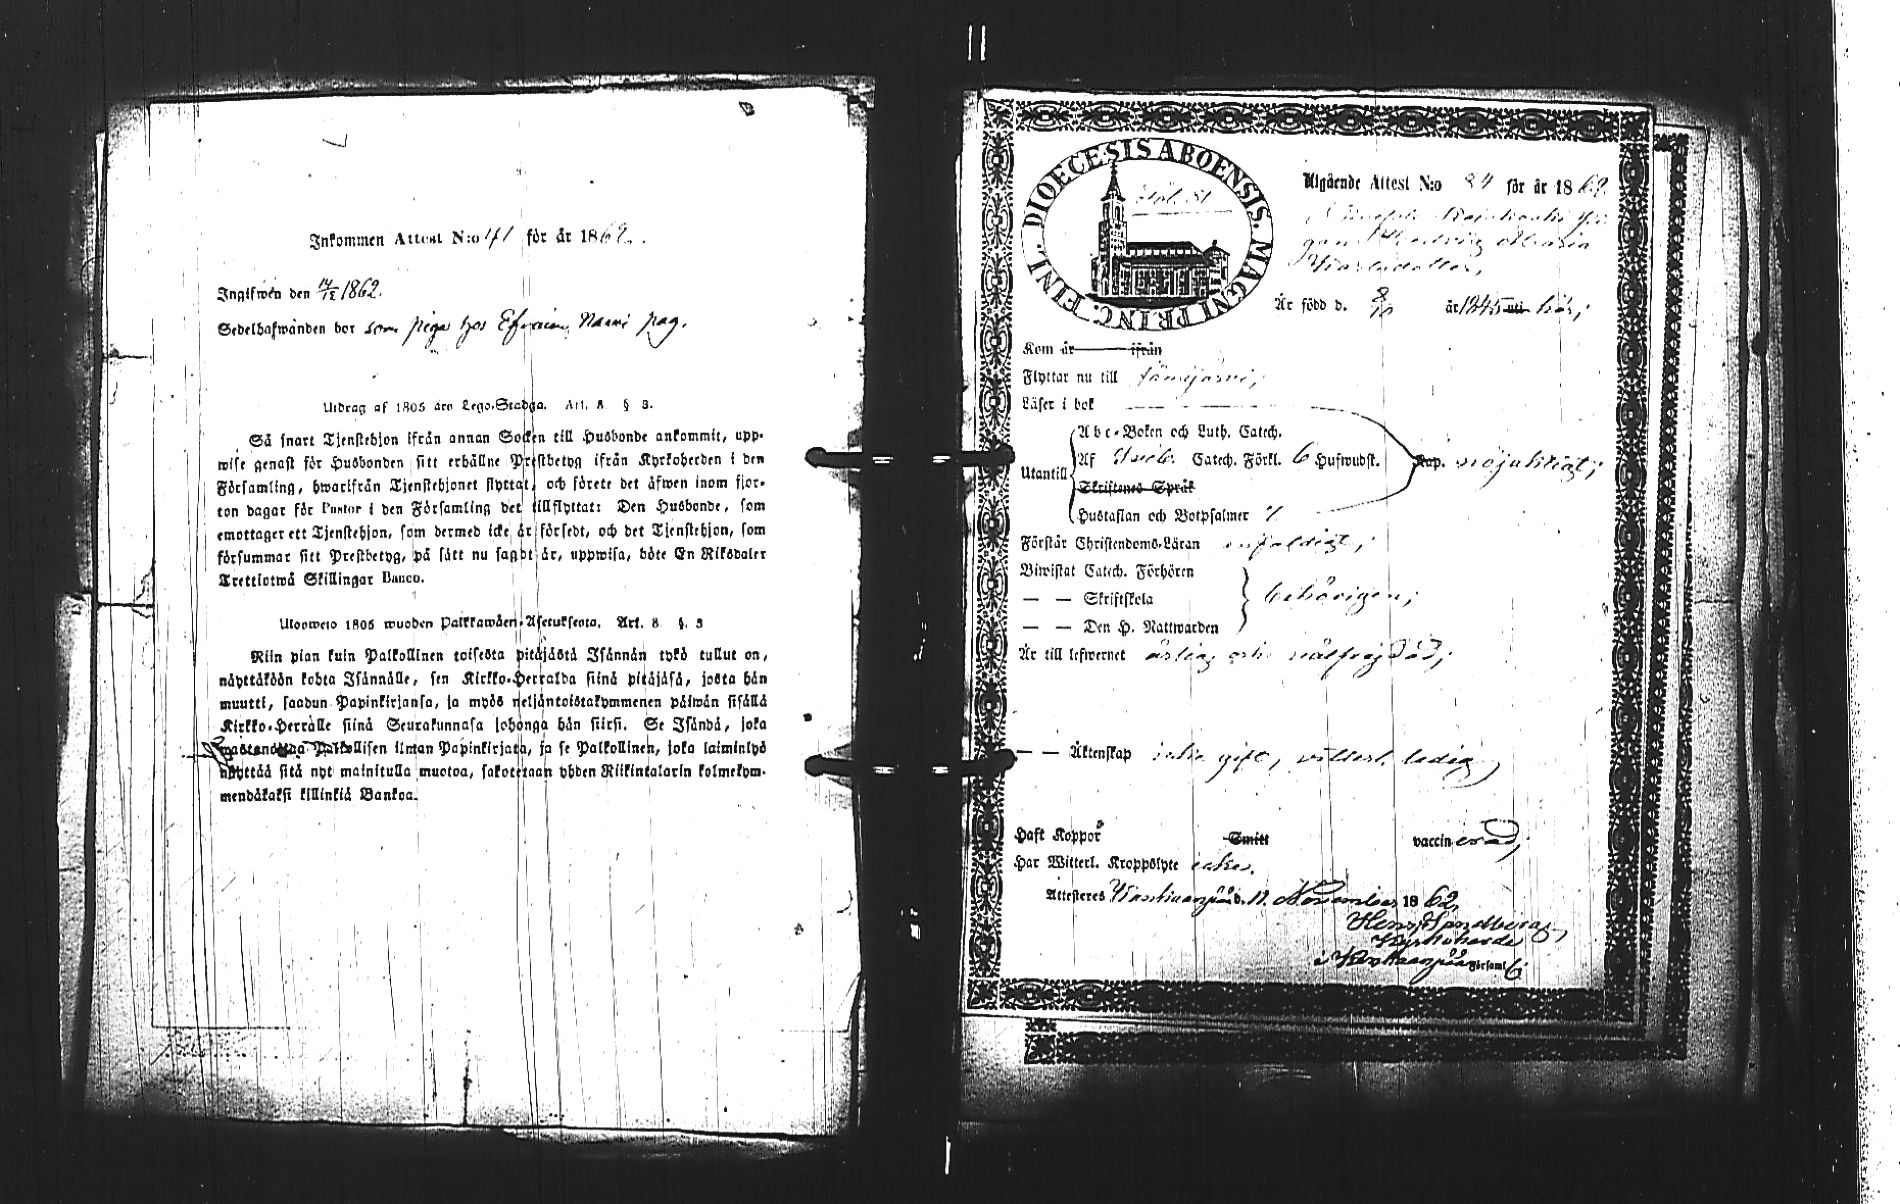 Inkommen Attest N:o 41 för år 1862.
Ingifwen den 14/12 1862.
Sedelhafwanden bor som piga hos Efraim Nasvi pag.
Utdrag af 1805 års Lego-Stadga. Art. 8 § 3.
Så snart Tjenstehjon ifrån annan Socken till Husbonde ankommit, upp-
wise genast för Husbonden sitt erhållne Prestbetyg ifrån Kyrkoherden i den
Församling, hwarifrån Tjenstehjonet flyttat, och förete det äfwen inom fjor-
ton dagar för Pastor i den Församling det tillflyttat: Den Husbonde, som
emottager ett Tjenstehjon, som dermed icke är försedt, och det Tjenstehjon, som
försummar sitt Prestbetyg, på sätt nu sagdt är, uppwisa, böte En Riksdaler
Trettiotwå Skillingar Banco.
Ulosweto 1805 wuoden Palkkawäen-Asetuksesta. Art. 8 §. 3
Niin pian kuin Palkollinen toisesta pitäjästä Isännän tykö tullut on,
näyttäköön kohta Isännälle, sen Kirkko-Herralda siinä pitäjäsä, josta hän
muutti, saadun Papinkirjansa, ja myös neljäntoistakymmenen päiwän sisällä
Kirkko-Herralle siinä Seurakunnasa johonga hän siirsi. Se Isändä, joka
wastanottaa Palkollisen ilman Papinkirjata, ja se Palkollinen, joka laiminlyö
näyttää sitä nyt mainitulla muotoa, sakotetaan yhden Riikintalarin kolmekym-
mendäkaksi killinkiä Bankoa.
DIOECESIS ABOENSIS. MAGNI PRINC. FINL.
Fol. 51
Utgående Attest N:o 84 för år 1862.
Maria
Är född d. 8/10 år 1845 uti här;
Kom år ifrån
Flyttar nu till Jämijärvi;
Läser i bok
Abc-Boken och Luth. Catech.
Utantill Af Sveb. Catech. Förkl. 6 Hufwudst. Kap. nöjaktigt;
Skriftenes Språk
Hustaflan och Botpsalmer
Förstår Christendoms-Läran enfaldigt;
Biwistat Catech. Förhören
— — Skriftskola behörigen;
— — Den H. Nattwarden
Är till lefwernet ärlig och välfrejdad;
— — Äktenskap icke gift, vitterl. ledig,
Haft Koppor Smitt vaccinerad;
Har Witterl. Kroppslyte icke.
Attesteras Kankaanpää d. 11 November 1862.
Kyrkoherde
i Kankaanpää Församl.